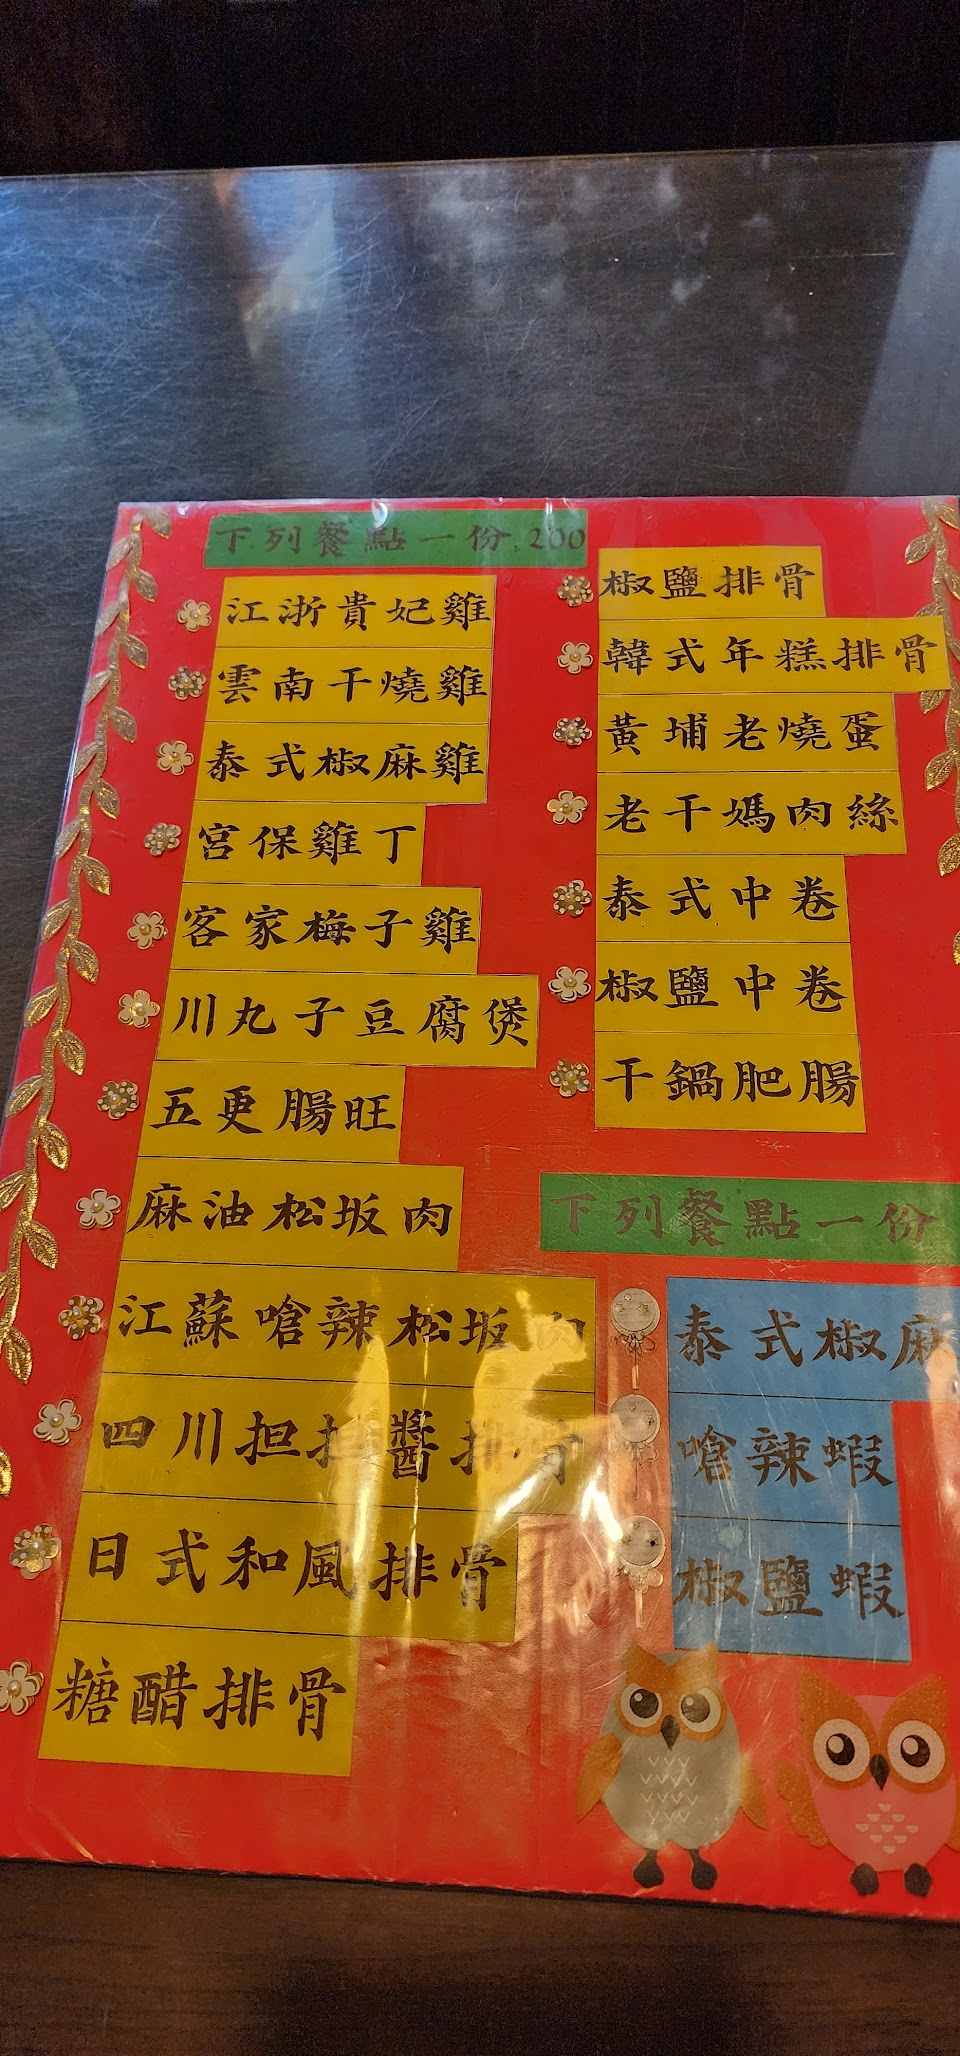 下列餐點一份 200
江浙貴妃雞
雲南干燒雞
泰式椒麻雞
宮保雞丁
客家梅子雞
川丸子豆腐煲
五更腸旺
麻油松坂肉
江蘇嗆辣松坂肉
四川担担醬排骨
日式和風排骨
糖醋排骨
椒鹽排骨
韓式年糕排骨
黃埔老燒蛋
老干媽肉絲
泰式中卷
椒鹽中卷
干鍋肥腸
下列餐點一份
泰式椒麻
嗆辣蝦
椒鹽蝦